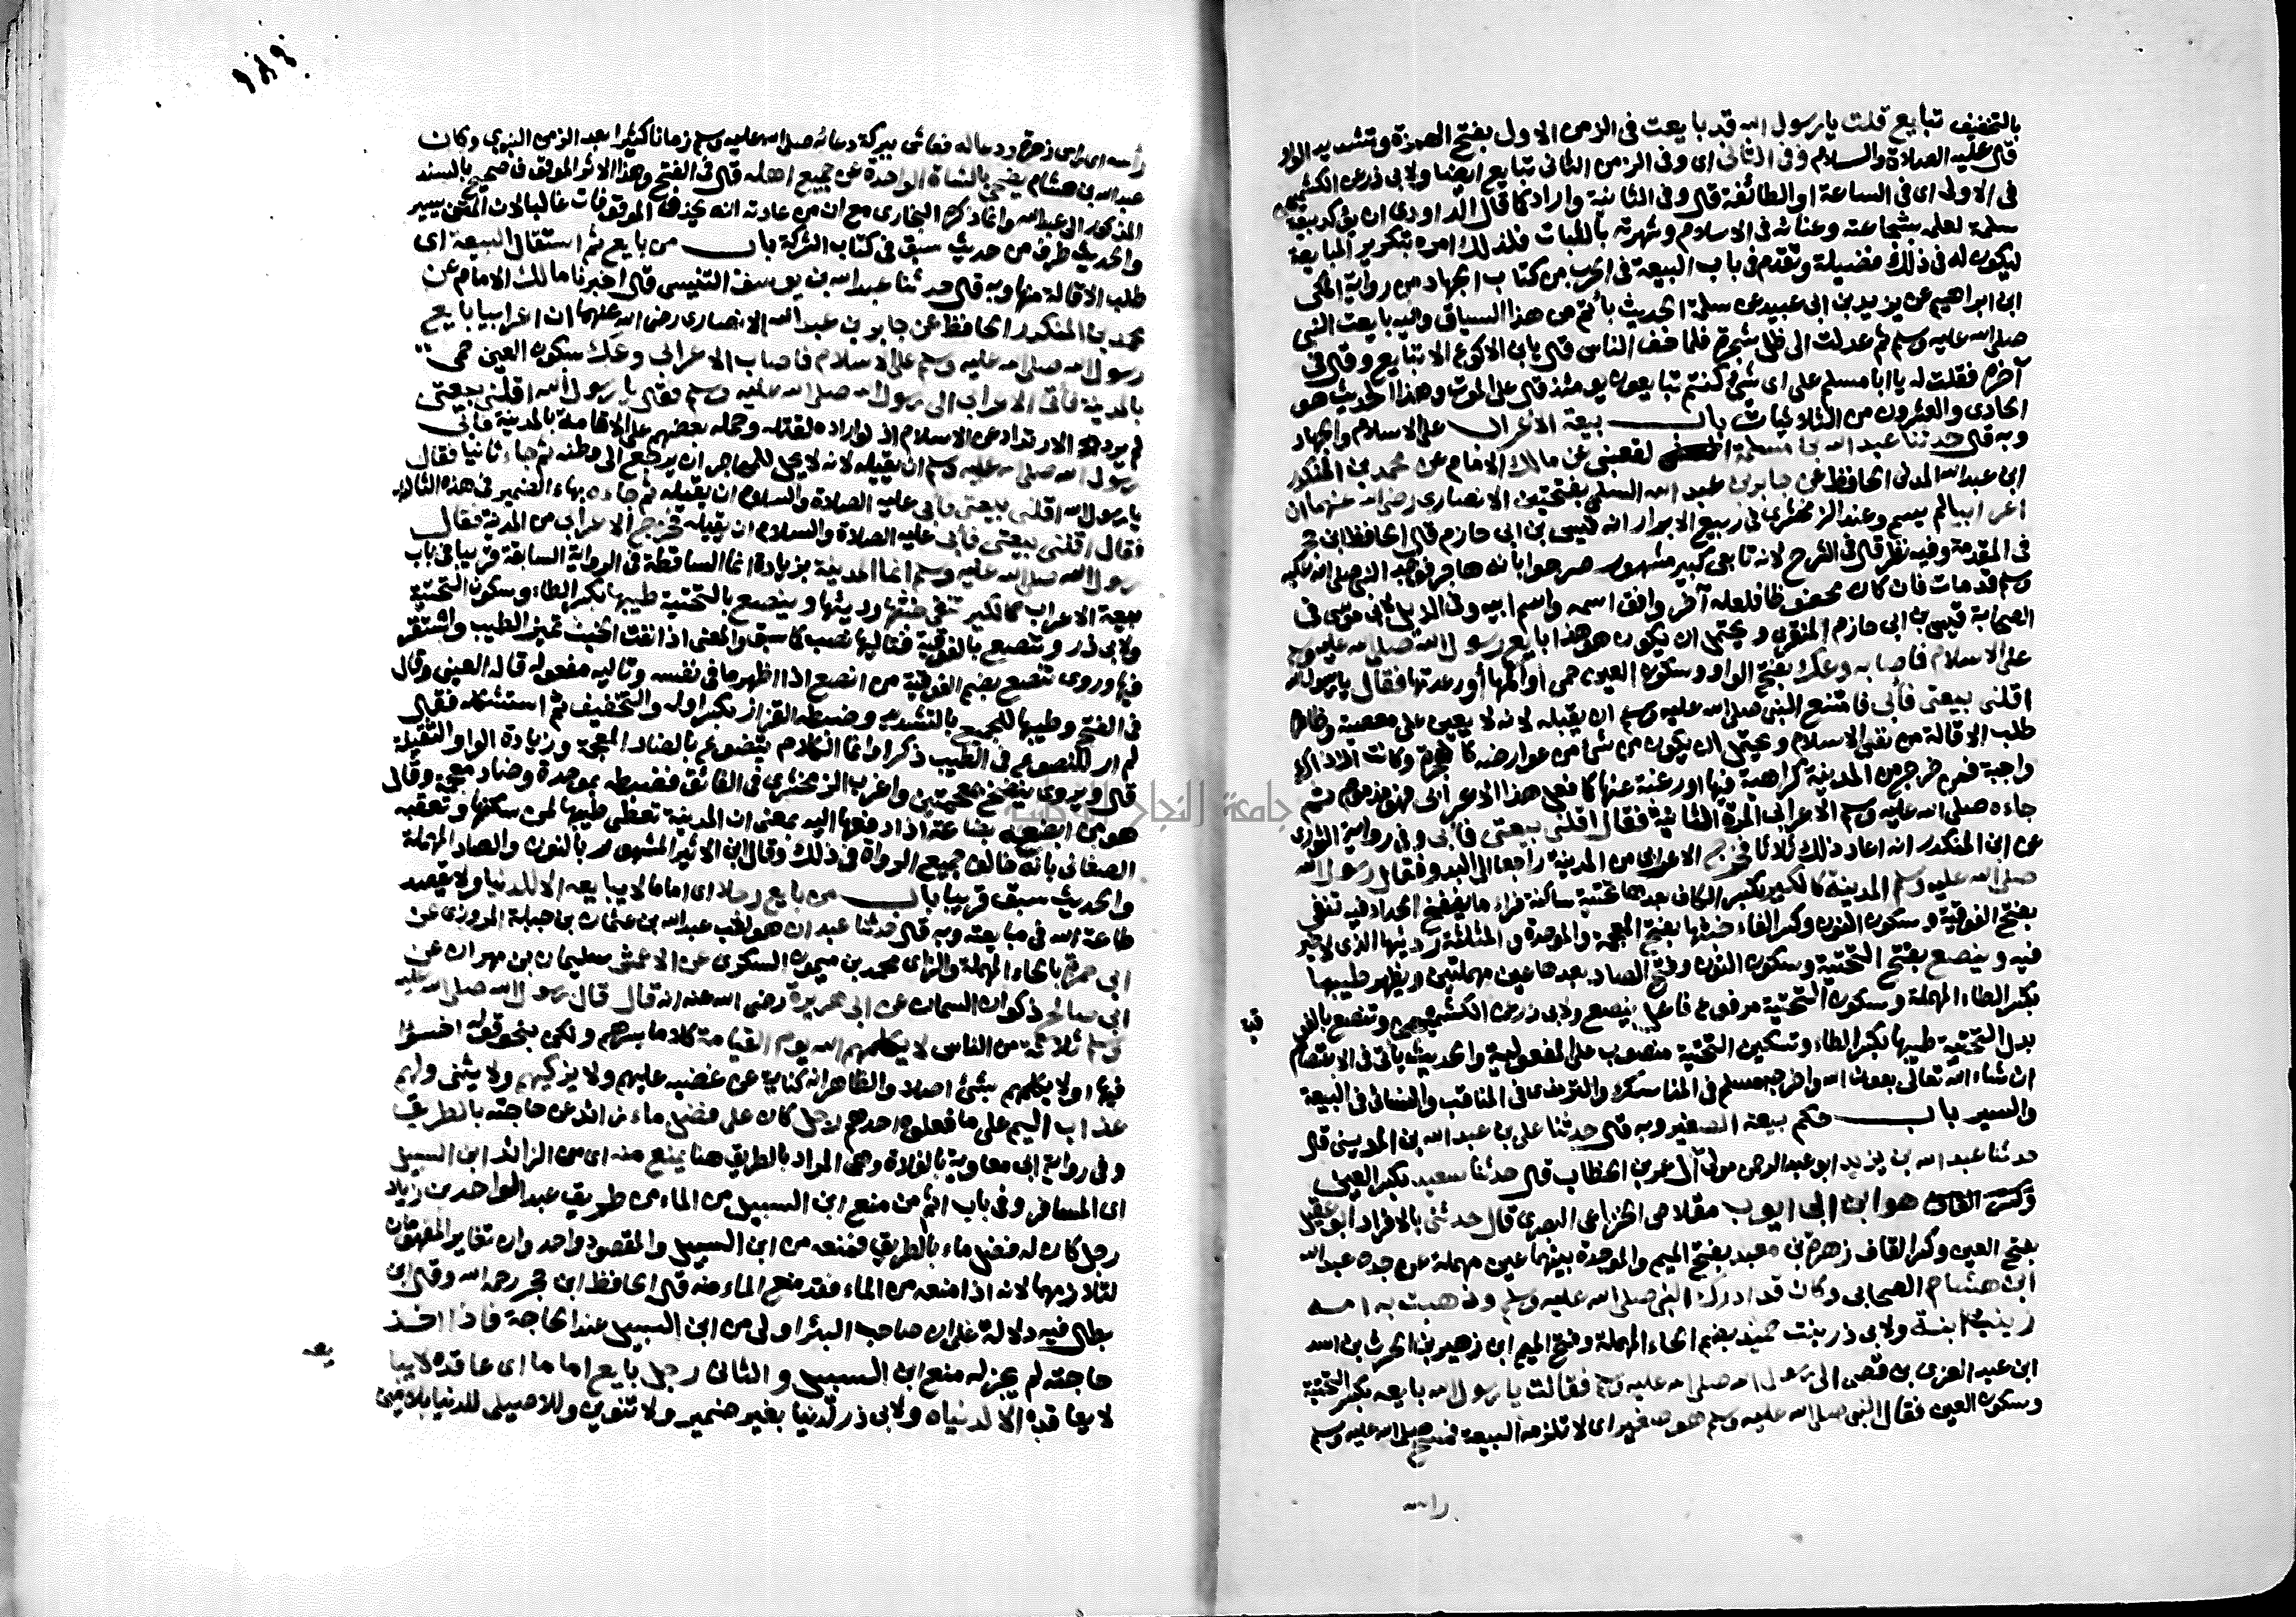 بالتخفيف تبايع قلت يا رسول الله قد بايعت في الزمن الاول بفتح الهمزة وتشديد الواو
قال عليه الصلاة والسلام وفي الثاني اى وفي الزمن الثاني تبايع ايضا ولابي ذر عن الكشميهني
في الاولى اى في الساعة او الطائفة قال وفي الثانية واراد كما قال الداودي ان يؤكد بيعة
سلمة لعلمه بشجاعته وعنائه في الاسلام وشهرته بالثبات فلذلك امره بتكرير المبايعة
ليكون له في ذلك فضيلة وتقدم في باب البيعة في الحرب من كتاب الجهاد من رواية المكي
ابن ابراهيم عن يزيد بن ابي عبيد عن سلمة الحديث بأتم من هذا السياق وفيه بايعت النبي
صلى الله عليه وسلم ثم عدلت الى ظل شجرة فلما خف الناس قال يا ابن الاكوع الا تبايع وقال في
آخره فقلت له يا ابا مسلم على اى شيء كنتم تبايعون يومئذ قال على الموت وهذا الحديث هو
الحادي والعشرون من الثلاثيات باب بيعة الاعراب على الاسلام والجهاد
وبه قال حدثنا عبد الله بن مسلمة القعنبي عن مالك الامام عن محمد بن المنكدر
ابي عبد الله المدني الحافظ عن جابر بن عبد الله السلمي بفتحتين الانصاري رضي الله عنهما ان
اعرابيا لم يسم وعند الزمخشري في ربيع الابرار انه قيس بن ابي حازم قال الحافظ ابن حجر
في المقدمة وفيه نظر قال في الشرح لانه تابعي كبير مشهور صرحوا بانه هاجر فوجد النبي صلى الله عليه
وسلم قد مات فان كان محفوظا فلعله آخر وافق اسمه واسم ابيه وفي الذيل لابي موسى في
الصحابة قيس بن ابي حازم المنقري ويحتمل ان يكون هو هذا بايع رسول الله صلى الله عليه وسلم
على الاسلام فاصابه وعك بفتح الواو وسكون العين حمى أو ألمها أو رعدتها فقال يا رسول الله
اقلني بيعتي فأبى فامتنع النبي صلى الله عليه وسلم ان يقيله لانه لا يعين على معصية وظاهره
طلب الاقالة من نفس الاسلام ويحتمل ان يكون من شيء من عوارضه كالهجرة وكانت اذ ذاك
واجبة فمن خرج من المدينة كراهة فيها او رغبة عنها كما فعل هذا الاعرابي فهو مذموم ثم
جاءه صلى الله عليه وسلم الاعرابي المرة الثانية فقال اقلني بيعتي فأبى وفي رواية الثوري
عن ابن المنكدر انه اعاد ذلك ثلاثا فخرج الاعرابي من المدينة راجعا الى البدو فقال رسول الله
صلى الله عليه وسلم المدينة كالكير بكسر الكاف بعدها تحتية ساكنة فراء ما ينفخ الحداد فيه تنفي
بفتح الفوقية وسكون النون وكسر الفاء خبثها بفتح المعجمة والموحدة والمثلثة رديئها الذي لا خير
فيه وينصع بفتح التحتية وسكون النون وفتح الصاد بعدها عين مهملتين ويظهر طيبها
بكسر الطاء المهملة وسكون التحتية مرفوع فاعل ينصع ولابي ذر عن الكشميهني وتنصع بالفوقية
بدل التحتية طيبها بكسر الطاء وتسكين التحتية منصوب على المفعولية والحديث يأتي في الاعتصام
ان شاء الله تعالى بعون الله واخرجه مسلم في المناسك والترمذي في المناقب والنسائي في البيعة
والسير باب حكم بيعة الصغير وبه قال حدثنا علي بن عبد الله بن المديني قال
حدثنا عبد الله بن يزيد ابو عبد الرحمن مولى آل عمر بن الخطاب قال حدثنا سعيد بكسر العين
هو ابن ابي ايوب مقلاص الخزاعي البصري قال حدثني بالافراد ابو عقيل
بفتح العين وكسر القاف زهرة بن معبد بفتح الميم والموحدة بينهما عين مهملة عن جده عبد الله
ابن هشام الصحابي وكان قد ادرك النبي صلى الله عليه وسلم وذهبت به امه
زينب ابنة ولابي ذر بنت حميد بضم الحاء المهملة وفتح الميم ابن زهير بن الحرث بن اسد
ابن عبد العزى بن قصي الى رسول الله صلى الله عليه وسلم فقالت يا رسول الله بايعه بكسر التحتية
وسكون العين فقال النبي صلى الله عليه وسلم هو صغير اى لا تلزمه البيعة فمسح صلى الله عليه وسلم
راسه
رأسه اى راس زهرة ودعا له فعاش ببركة دعائه صلى الله عليه وسلم زمانا كثيرا بعد الزمن النبوي وكان
عبد الله بن هشام يضحي بالشاة الواحدة عن جميع اهله قال في الفتح وهذا الاثر الموقوف صحيح بالسند
المذكور الى عبد الله وانما ذكره البخاري مع ان من عادته انه يحذف الموقوفات غالبا لان المتن يسير
والحديث طرف من حديث سبق في كتاب الشركة باب من بايع ثم استقال البيعة اى
طلب الاقالة منها وبه قال حدثنا عبد الله بن يوسف التنيسي قال اخبرنا مالك الامام عن
محمد بن المنكدر الحافظ عن جابر بن عبد الله الانصاري رضي الله عنهما ان اعرابيا بايع
رسول الله صلى الله عليه وسلم على الاسلام فاصاب الاعرابي وعك بسكون العين حمى
بالمدينة فأتى الاعرابي الى رسول الله صلى الله عليه وسلم فقال يا رسول الله اقلني بيعتي
لم يرد الارتداد عن الاسلام اذ لو اراده لقتله وحمله بعضهم على الاقامة بالمدينة فأبى
رسول الله صلى الله عليه وسلم ان يقيله لانه لا يحل للمهاجر ان يرجع الى وطنه ثم جاء ثانيا فقال
يا رسول الله اقلني بيعتي فأبى عليه الصلاة والسلام ان يقيله ثم جاءه بهاء الضمير في هذه الثالثة
فقال اقلني بيعتي فأبى عليه الصلاة والسلام ان يقيله فخرج الاعرابي من المدينة فقال
رسول الله صلى الله عليه وسلم انما المدينة بزيادة انما الساقطة في الرواية السابقة قريبا في باب
بيعة الاعراب كالكير تنفي خبثها رديئها وينصع بالتحتية طيبها بكسر الطاء وسكون التحتية
ولابي ذر وتنصع بالفوقية فتاليها نصب كما سبق والمعنى اذا نفت الخبث تميز الطيب واستقر
فيها وروى تنصع بضم الفوقية من انصع اذا اظهر ما في نفسه وتاليه مفعوله قاله العيني وقال
في الفتح وطيبها للجميع بالتشديد وضبطه القزاز بكسر اوله والتخفيف ثم استشكله فقال
لم ار للنصوع في الطيب ذكرا وانما الكلام يتضوع بالضاد المعجمة وزيادة الواو الثقيلة
قال ويروى ينضخ بمعجمتين واغرب الزمخشري في الفائق فضبطه بموحدة وضاد معجمة وقال
هو من ابضعه بضاعة اذا دفعها اليه بمعنى ان المدينة تعطي طيبها لمن سكنها وتعقبه
الصغاني بانه خالف جميع الرواة في ذلك وقال ابن الاثير المشهور بالنون والصاد المهملة
والحديث سبق قريبا باب من بايع رجلا اى اماما لا يبايعه الا للدنيا ولا يقصد
طاعة الله في مبايعته وبه قال حدثنا عبدان هو لقب عبد الله بن عثمان بن جبلة المروزي عن
ابي حمزة بالحاء المهملة والزاى محمد بن ميمون السكري عن الاعمش سليمان بن مهران عن
ابي صالح ذكوان السمان عن ابي هريرة رضي الله عنه انه قال قال رسول الله صلى الله عليه
وسلم ثلاثة من الناس لا يكلمهم الله يوم القيامة كلاما يسرهم ولكن بنحو قوله اخسؤا
فيها او لا يكلمهم بشئ اصلا والظاهر انه كناية عن غضبه عليهم ولا يزكيهم ولا يثنى ولهم
عذاب اليم على ما فعلوه احدهم رجل كان على فضل ماء زائد عن حاجته بالطريق
وفي رواية ابي معاوية بالفلاة وهى المراد بالطريق هنا يمنع منه اى من الزائد ابن السبيل
اى المسافر وفي باب اثم من منع ابن السبيل من الماء من طريق عبد الواحد بن زياد
رجل كان له فضل ماء بالطريق فمنعه من ابن السبيل والمقصود واحد وان تغاير المفهومان
لتلازمهما لانه اذا منعه من الماء فقد منع الماء منه قال الحافظ ابن حجر رحمه الله وقال ابن
بطال فيه دلالة على ان صاحب البئر اولى من ابن السبيل عند الحاجة فاذا اخذ
حاجته لم يجز له منع ابن السبيل و الثاني رجل بايع اماما اى عاقده لا يبايعه
لا يعاقده الا لدنياه ولابي ذر لدنيا بغير ضمير ولا تنوين وللاصيلي للدنيا بلامين
جامعة النجاح الوطنية